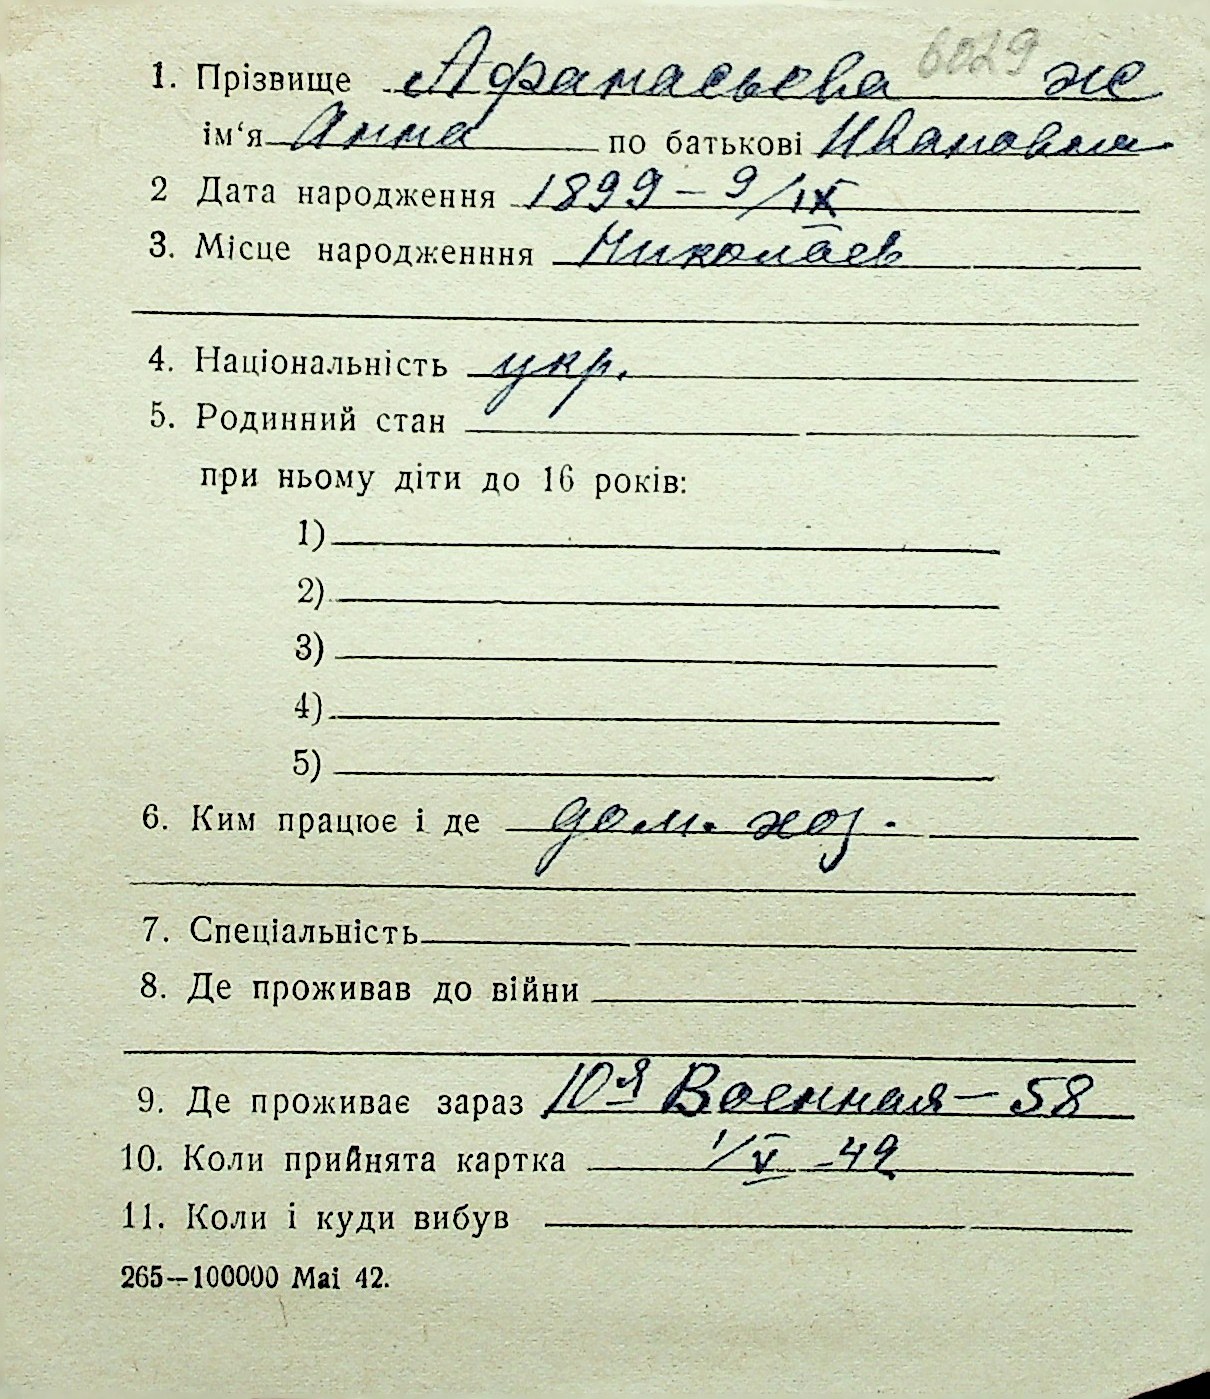 6029
1. Прізвище Афанасьева ж
ім‘я Анна по батькові Ивановна
2 Дата народження 1899 – 9/IX
3. Місце народженння Николаев
4. Національність укр.
5. Родинний стан
при ньому діти до 16 років:
1)
2)
3)
4)
5)
6. Ким працює і де дом. хоз.
7. Спеціальність
8. Де проживав до війни
9. Де проживає зараз 10я Военная – 58
10. Коли прийнята картка 1/V – 42
11. Коли і куди вибув
265—100000 Mai 42.